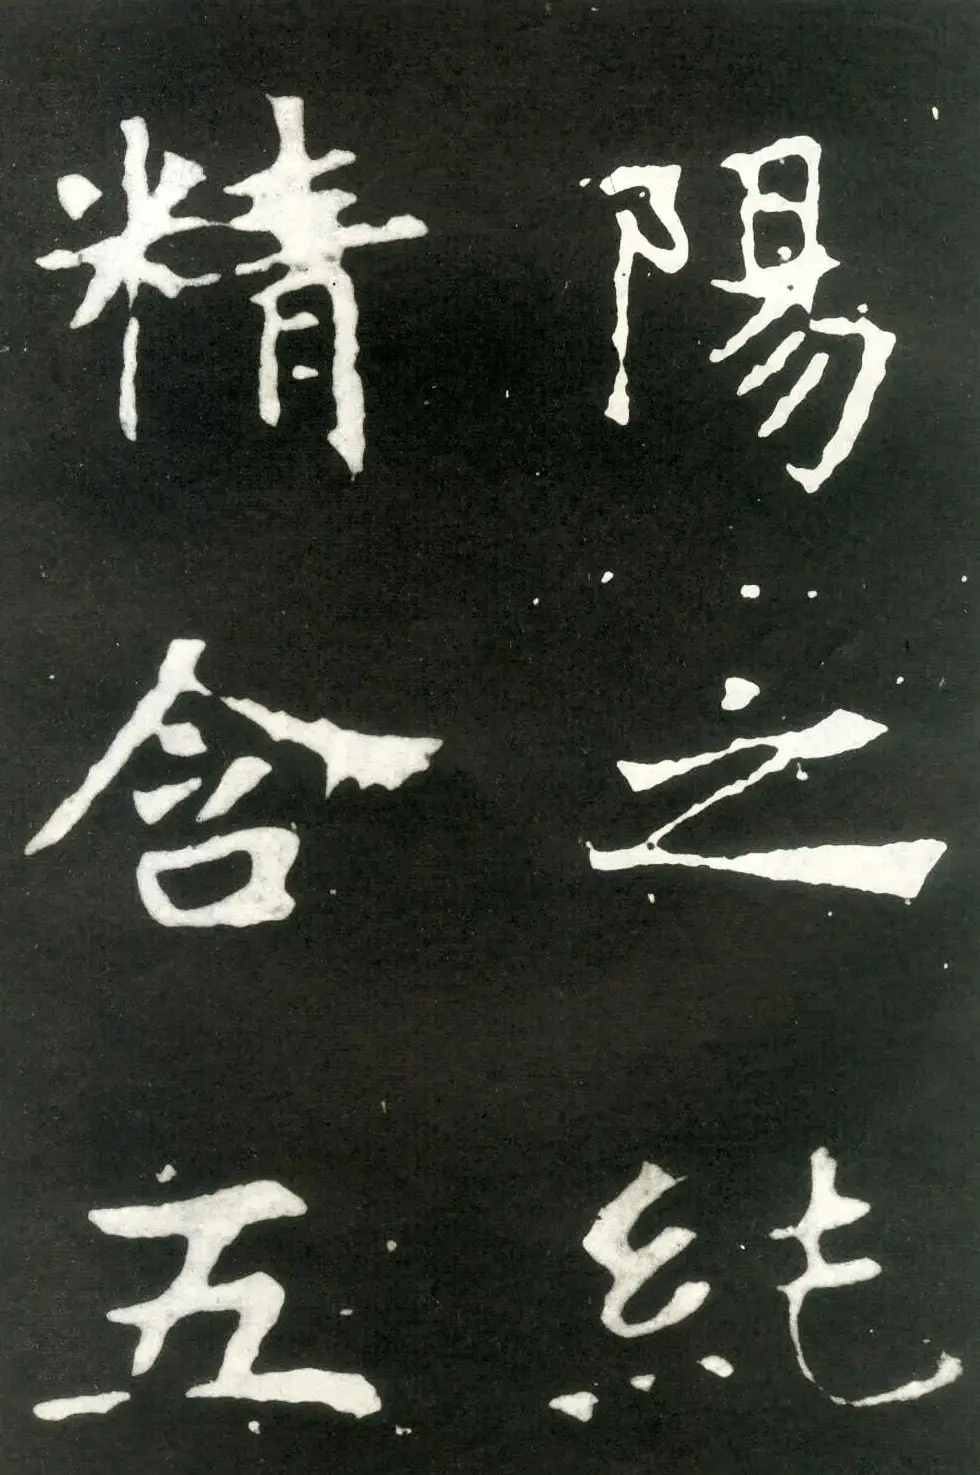 陽之純
精含五